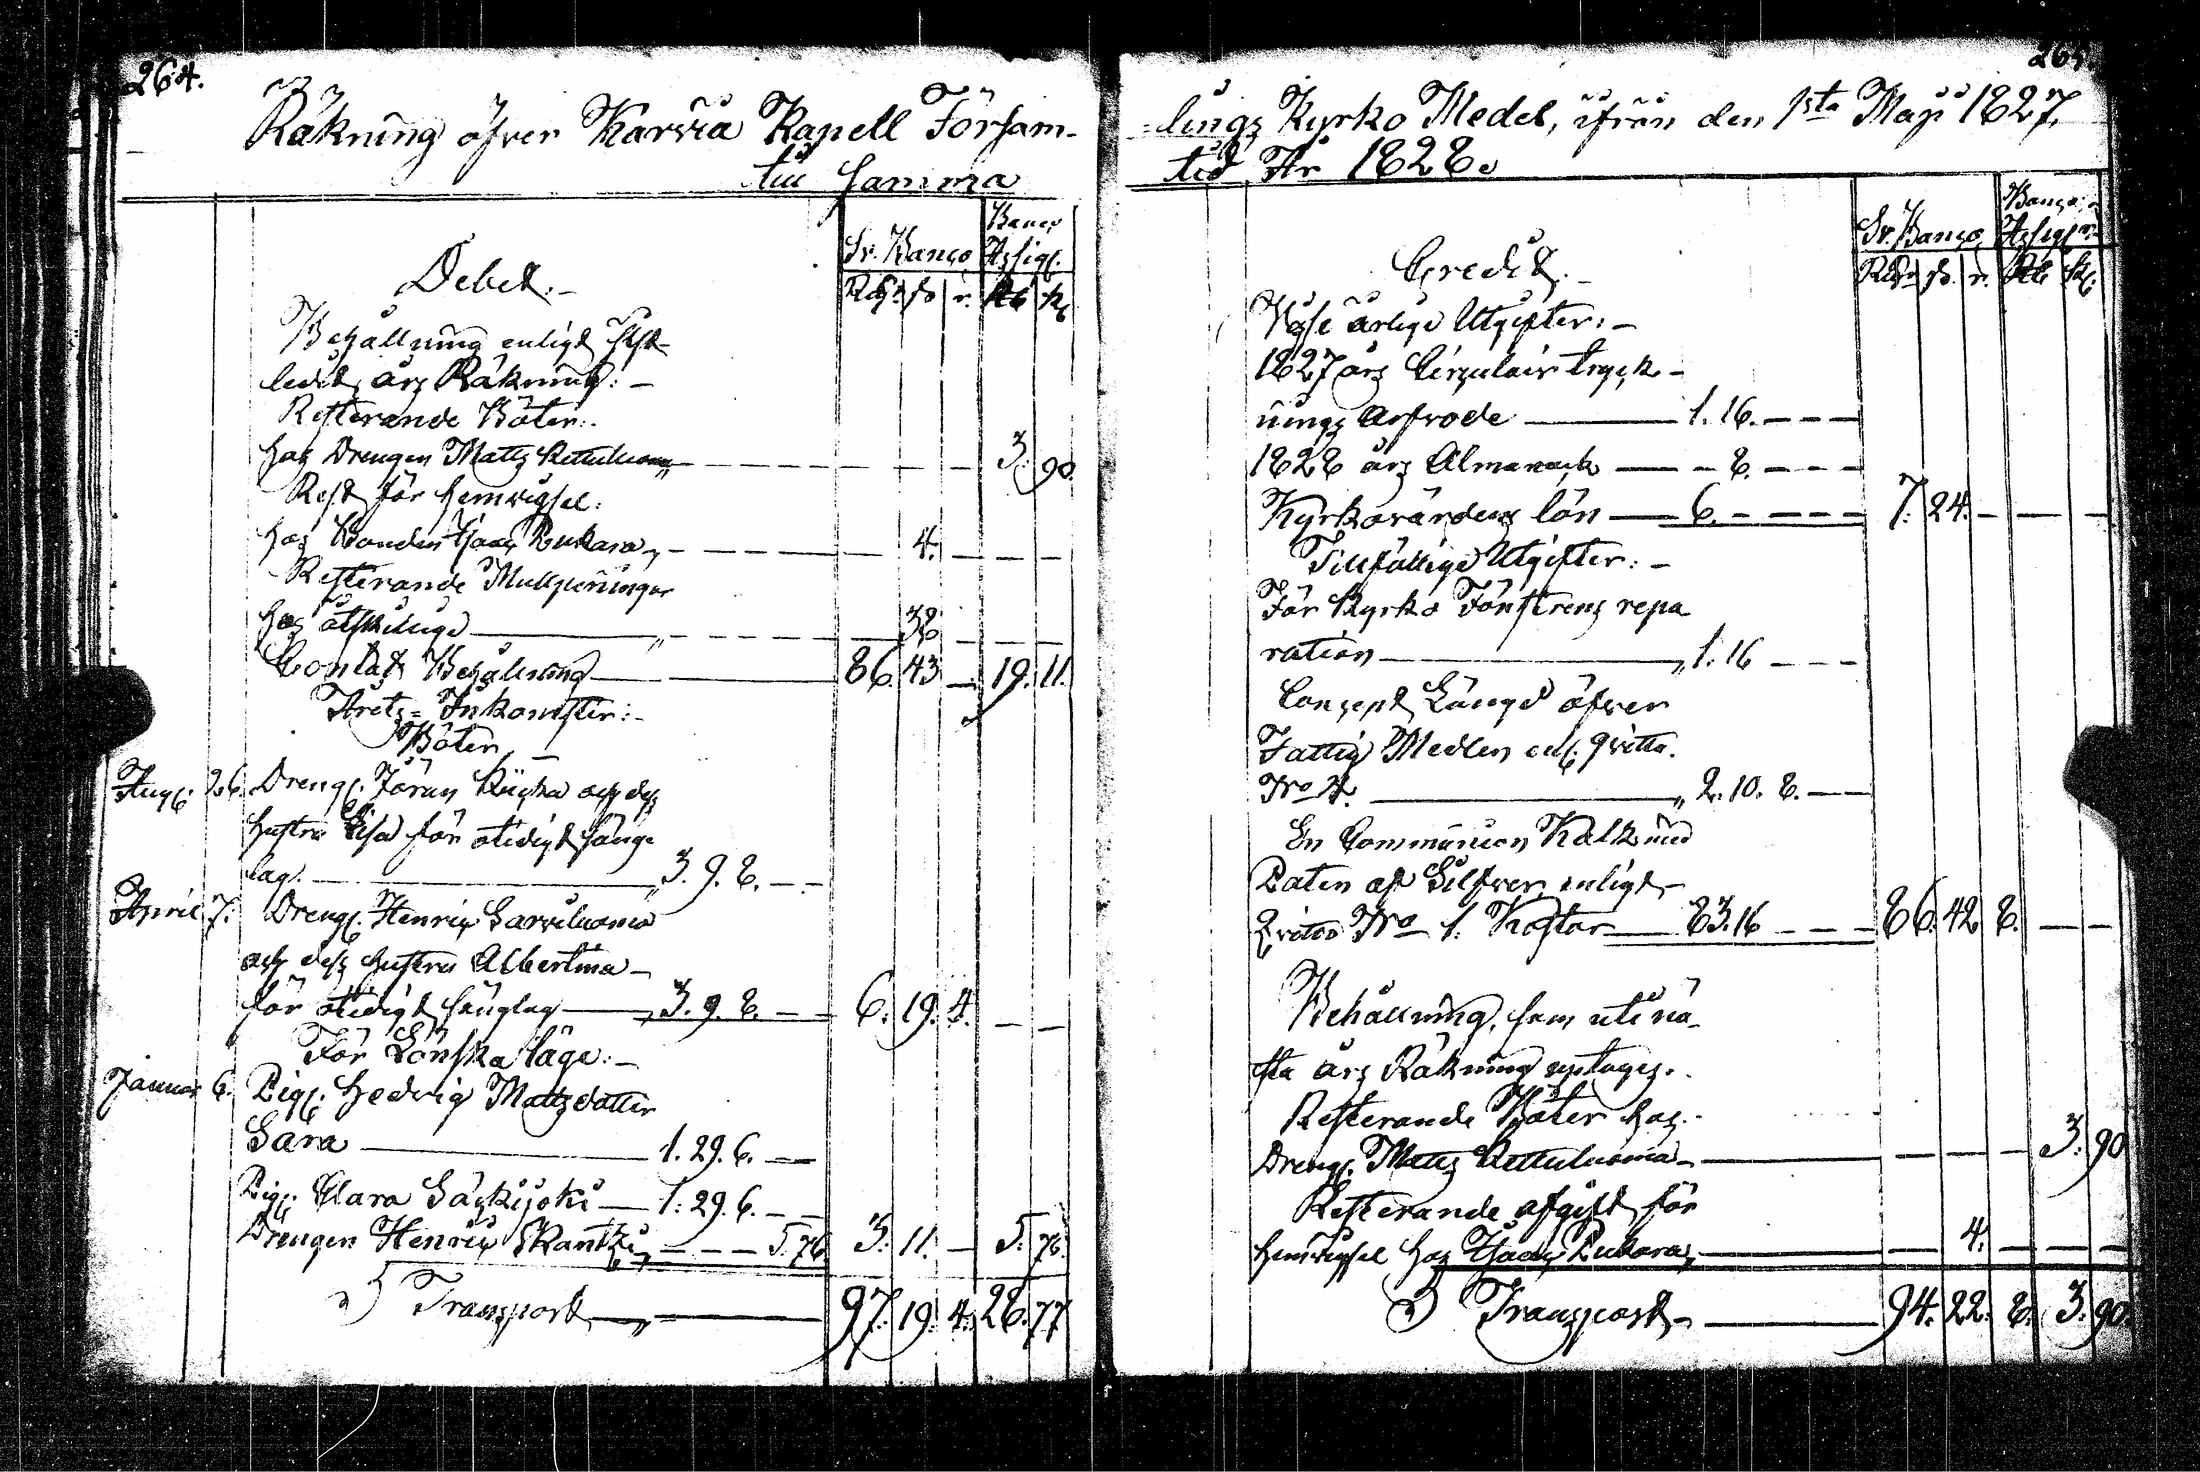 264.
Räkning öfver Karvia Kapell Försam-
till samma
Sv. Banco
Banco Assig.
Debet:
Rdr s. r. Rb k
Behållning enligt sist-
ledit års Räkning:
Resterande Böter:
hos Drengen Matts 3. 90.
Rest för hemvigsel:
hos Bonden Isaac Pukara 4.
Resterande Mullpenningar
hos åtskillige 38
Contat Behållning 86. 43 19. 11.
Årets Inkomster:
Böter
Aug. 26. Dreng. Jöran och dess
hustru Lisa för otidigt sänge
lag. 3. 9. 8.
April 7. Dreng. Henric Sarviluoma
och dess hustru Albertina
för otidigt sänglag 3. 9. 8. 6. 19. 4.
För Lönskaläge:
Januar 6. Pig. Hedvig Mattsdotter
Sara 1. 29. 6.
Pig. Clara Säckijoki 1. 29. 6.
Drengen Henric Skantzi 5. 76 3. 11. 5. 76.
Transport 97. 19. 4. 28. 77
265.
-lings Kyrko Medel, ifrån den 1sta Maji 1827,
tid År 1828.
Sv. Banco
Banco Assig.
Credit:
Rdr s. r. Rb k.
Wisse årlige Utgifter:
1827 års Circulair tryck-
nings Arfvode 1. 16.
1828 års Almanack 8.
Kyrkovärdens lön 6. 7. 24.
Tillfällige Utgifter:
För Kyrko Fönstrens repa
ration 1. 16
Concept Längd öfver
Fattig Medlen enl. qvitto.
No 4. 2. 10. 8.
En Communion Kalk med
Paten af Silfver enligt
Qvitto No 1. Kostar 83. 16 86. 42 8.
Behållning, som uti nä-
sta års Räkning uptages.
Resterande Böter hos
Dreng. Matts 3. 90
Resterande afgift för
hemvigsel hos Isaac Pukara 4.
Transport 94. 22. 8. 3. 90.